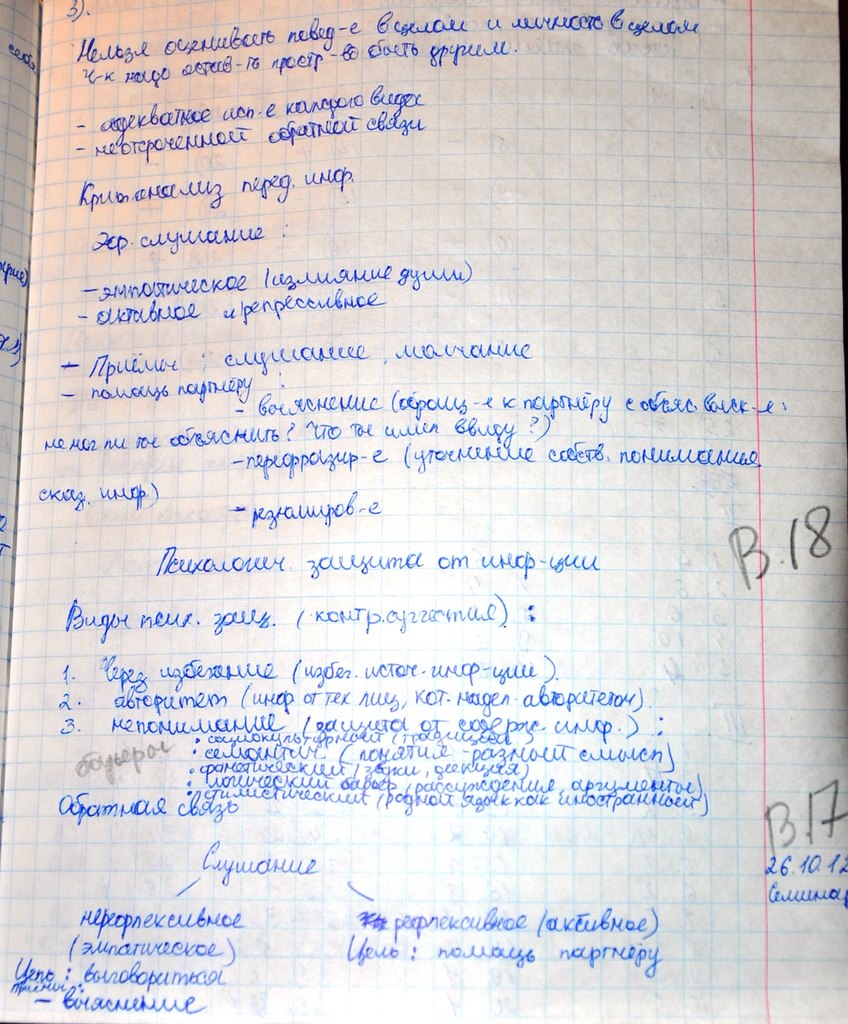 3).
Нельзя оценивать повед-е в целом и личность в целом
Ч-к надо остав-ть простр-во быть другим.
- адекватное исп-е каждого вида
- неотсроченной обратной связи
Крит. анализ перед. инф.
Эф. слушание :
- эмпатическое (излияние души)
- активное и репрессивное
- Приёмы : слушание, молчание
- помощь партнёру :
- выяснение (обращ-е к партнёру с объяс.
не мог ли ты объяснить? Что ты имел ввиду?)
- перефразир-е (уточнение собств. понимания
сказ. инф.)
- резюмиров-е
В.18
Психологич. защита от инф-ции
Виды псих. защ. (контр.суггестия) :
1. Через избегание (избег. источ. инф-ции).
2. авторитет (инф от тех лиц, кот. надел. авторитетом).
3. непонимание (защита от содерж. инф.) :
барьеры
• социокультурный (традиции)
• семантич. (понятия - разный смысл)
• фонетический (звуки, дикция)
• логический барьер (рассуждения, аргументы)
• стилистический (родной язык как иностранный)
Обратная связь
В.17
26.10.12
Семинар
Слушание
нерефлексивное
(эмпатическое)
Цель : выговориться
приёмы :
- выяснение
рефлексивное (активное)
Цель : помощь партнёру